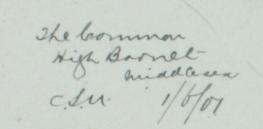 The Common
High Barnet
Middlesex
C.S.M. 1/6/01